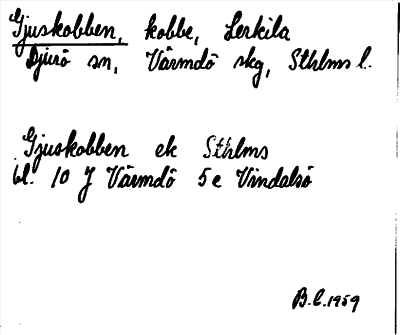 Gjuskobben, kobbe, Lerkila
Djurö sn, Värmdö skg, Sthlms l.
Gjuskobben ek Sthlms
bl. 10 J Värmdö 5 e Vindalsö
B.C. 1959